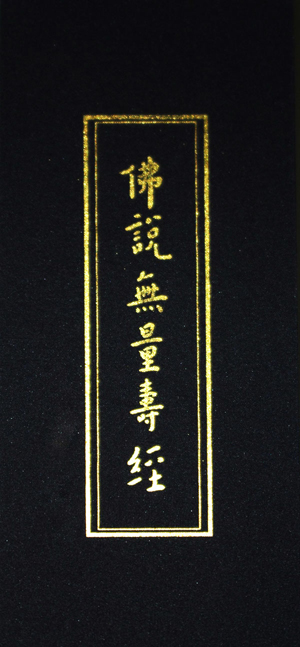 佛說無量壽經